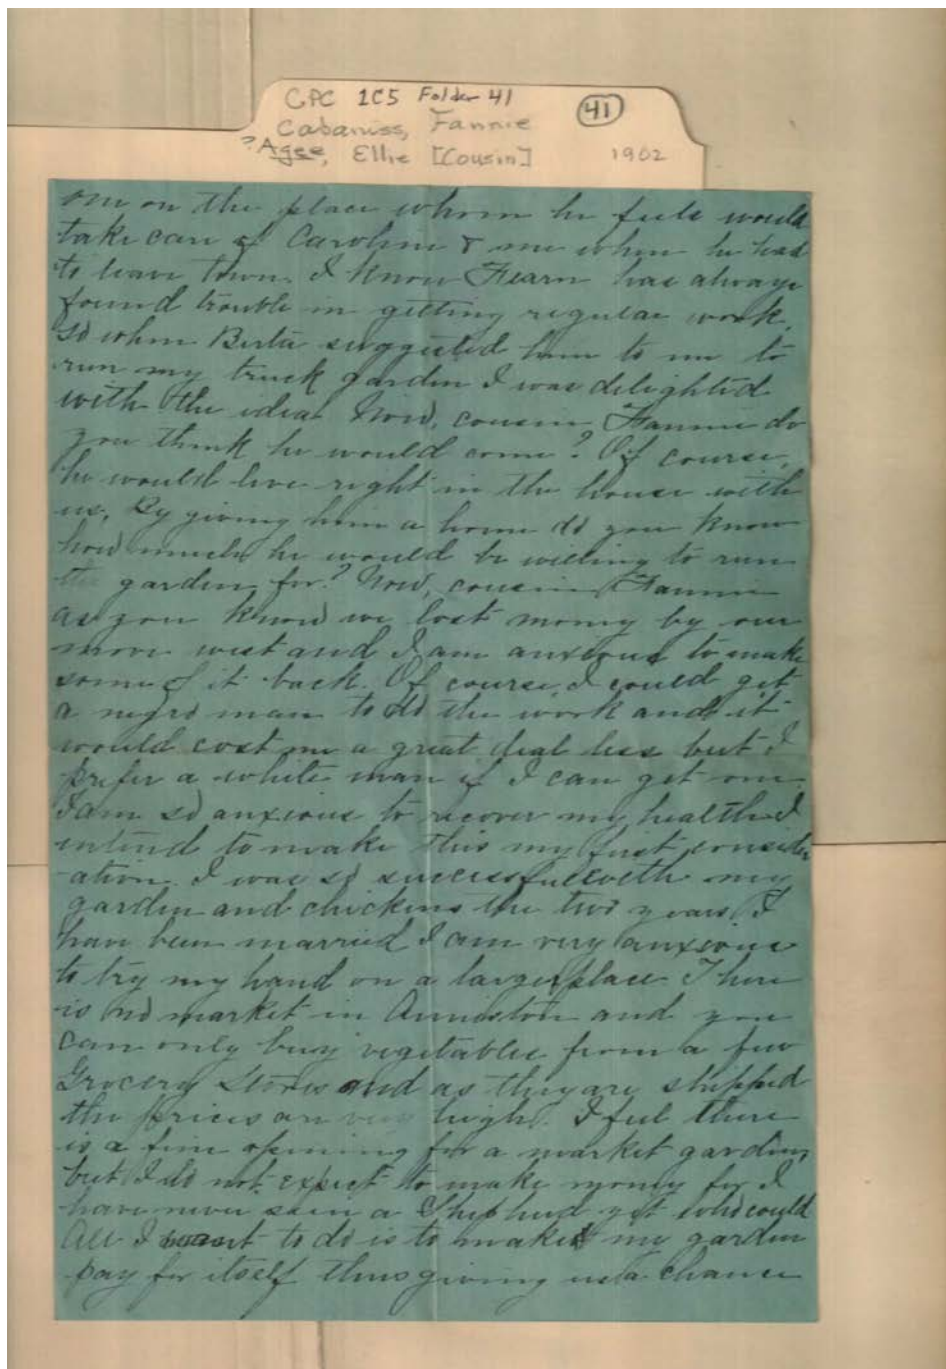 CPC 1C5 Folder 41
41
Cabaniss, Fannie
?Agee, Ellie [Cousin]
1902
one on the place whom he feels would
take care of Caroline & me when he had
to leave town. I know Fearn has always
found trouble in getting regular work,
so when Berta suggested him to me to
run my truck garden I was delighted
with the idea. Now, cousin Fannie do
you think he would come? Of course,
he would live right in the house with
us. By giving him a home do you know
how much he would be willing to run
the garden for? Now, cousin Fannie
as you know we lost money by our
move west and I am anxious to make
some of it back. Of course, I could get
a negro man to do the work and it
would cost me a great deal less but I
prefer a white man if I can get one.
I am so anxious to recover my health I
intend to make this my first consider
ation. I was so successful with my
garden and chickens the two years I
have been married I am very anxious
to try my hand on a larger place. There
is no market in Anniston and you
can only buy vegetables from a few
Grocery Stores and as they are shipped
the prices are very high. I feel there
is a fine opening for a market garden,
but I do not expect to make money for I
have never seen a Shepherd yet who could
All I want to do is to make my garden
pay for itself thus giving us a chance